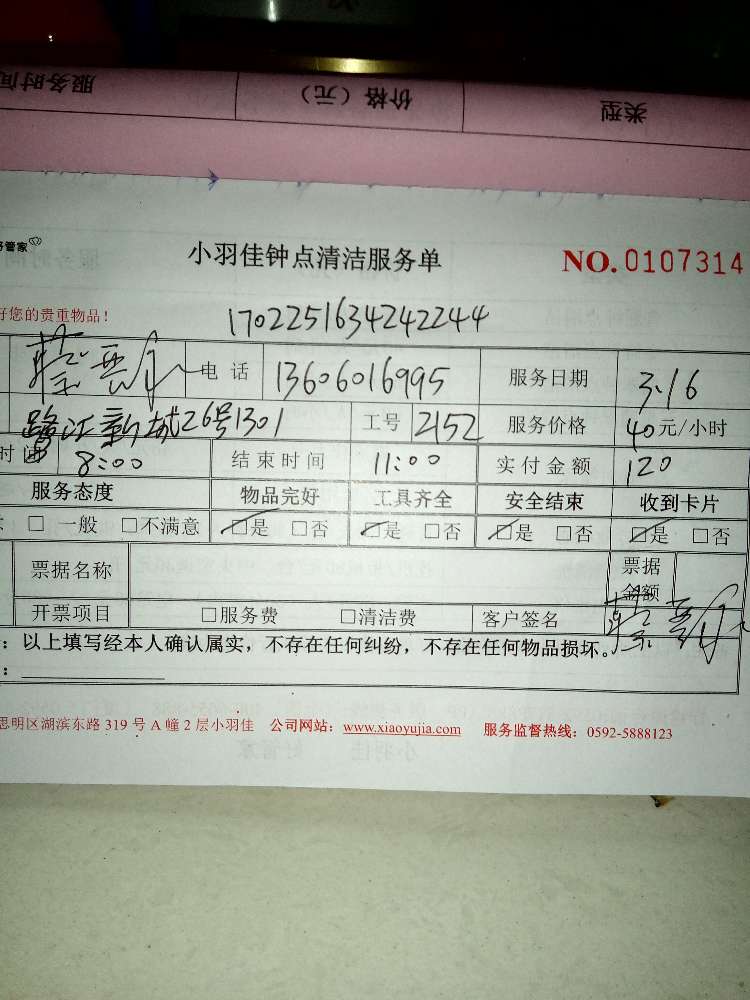 服务时间 价格（元） 类型
管家
小羽佳钟点清洁服务单 NO.0107314
好您的贵重物品！
1702251634242244
蔡 电话 13606016995 服务日期 3.16
鹭江新城26号1301 工号 2152 服务价格 40元/小时
时间 8:00 结束时间 11:00 实付金额 120
服务态度 物品完好 工具齐全 安全结束 收到卡片
□一般 □不满意 □是 □否 □是 □否 □是 □否 □是 □否
票据名称 票据金额
开票项目 □服务费 □清洁费 客户签名 蔡
：以上填写经本人确认属实，不存在任何纠纷，不存在任何物品损坏。
：
思明区湖滨东路 319 号 A 幢 2 层小羽佳 公司网站：www.xiaoyujia.com 服务监督热线：0592-5888123